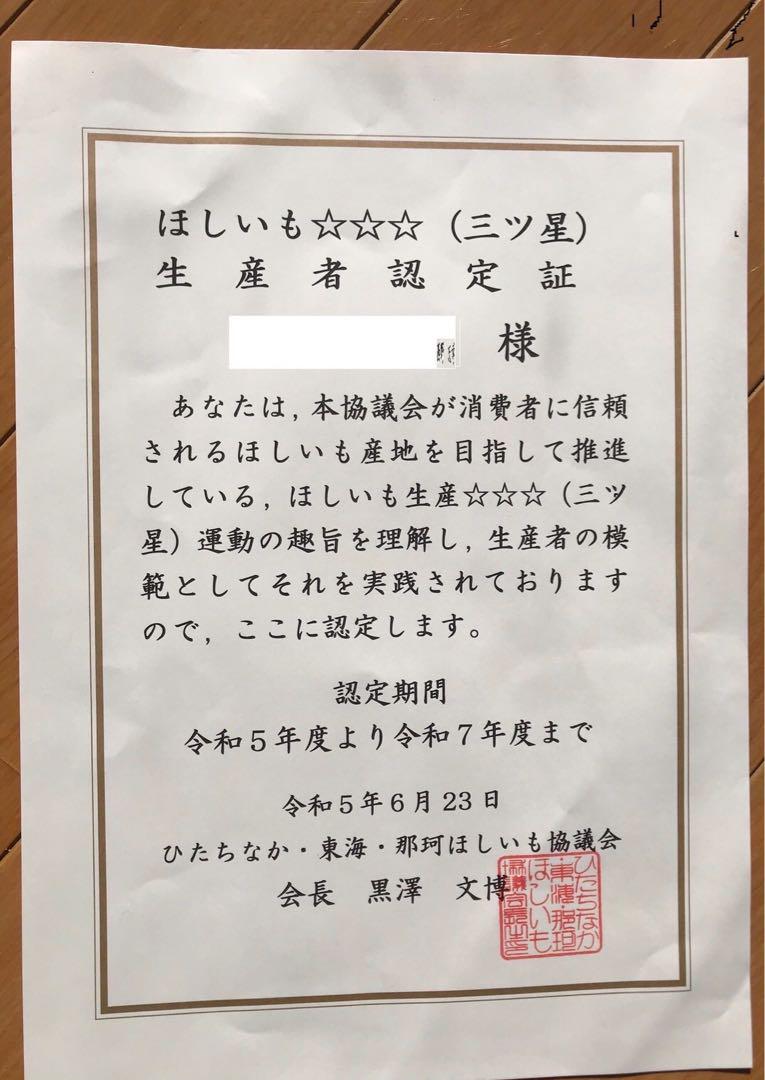 ほしいも☆☆☆（三ツ星）
生産者認定証
様
あなたは，本協議会が消費者に信頼
されるほしいも産地を目指して推進
している，ほしいも生産☆☆☆（三ツ
星）運動の趣旨を理解し，生産者の模
範としてそれを実践されております
ので，ここに認定します。
認定期間
令和５年度より令和７年度まで
令和５年６月23日
ひたちなか・東海・那珂ほしいも協議会
会長　黒澤　文博
ひたちなか
・東海・那珂
ほしいも